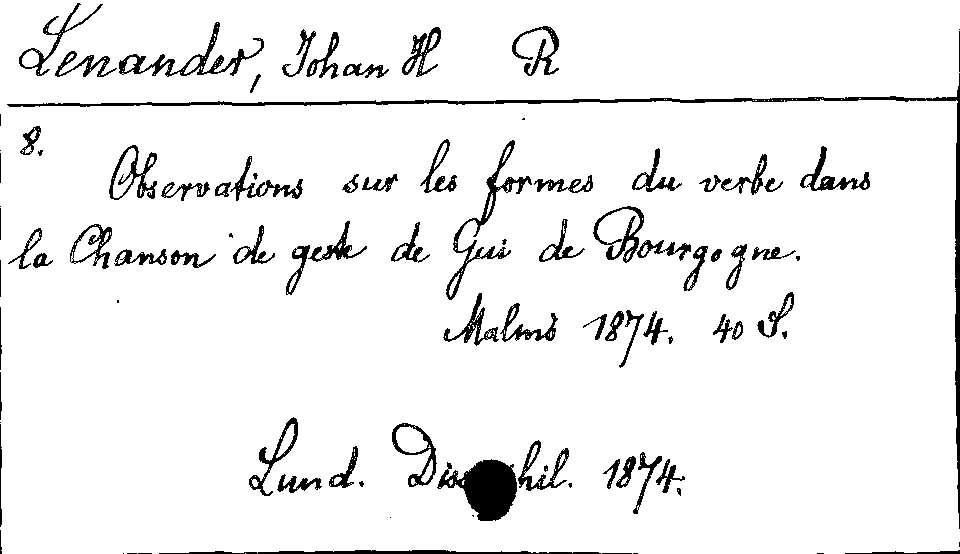 Lenander, Johan H R
8.
Observations sur les formes du verbe dans
la Chanson de geste de Gui de Bourgogne.
Malmö 1874. 40 S.
Lund. Diss. phil. 1874.